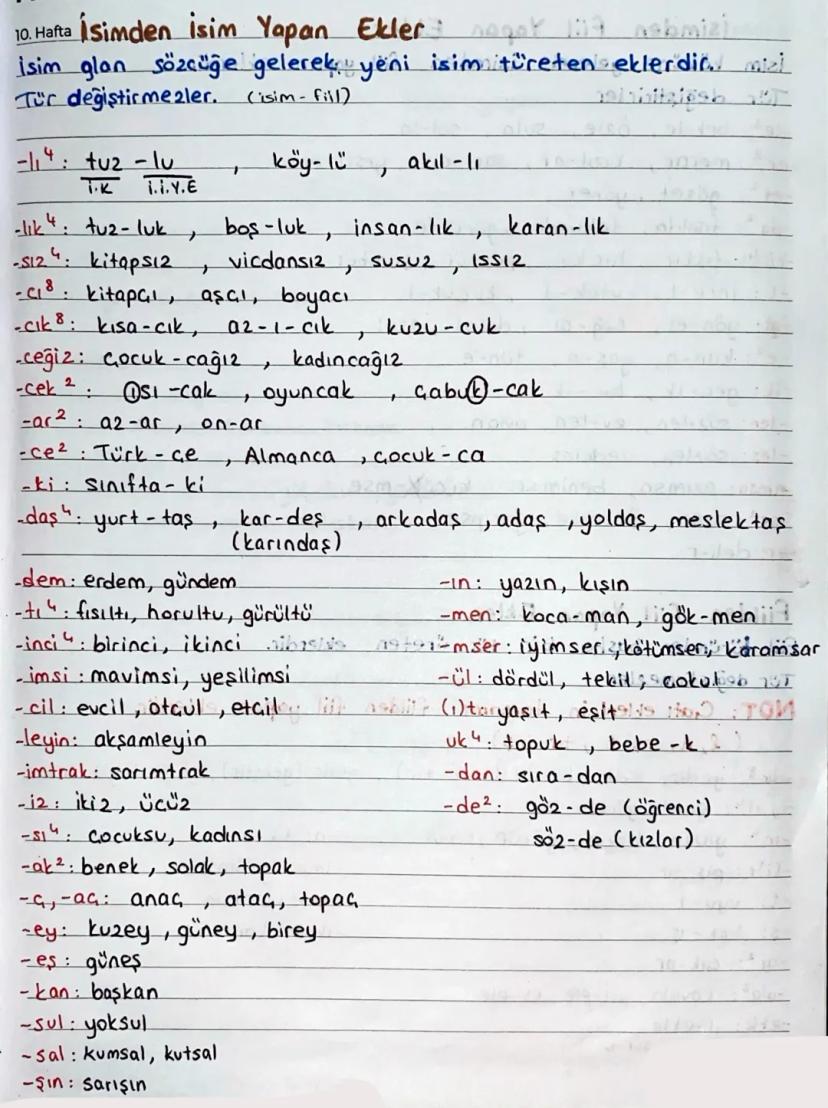 10. Hafta İsimden İsim Yapan Ekler:
İsim olan sözcüğe gelerek yeni isim türeten eklerdir.
Tür değiştirmezler. (isim - fiil)
-lı⁴: tuz -lu, köy-lü, akıl-lı
İ.K İ.İ.Y.E
-lık⁴: tuz-luk, boş-luk, insan-lık, karan-lık
-sız⁴: kitapsız, vicdansız, susuz, ıssız
-cı⁸: kitapçı, aşçı, boyacı
-cık⁸: kısa-cık, az-ı-cık, kuzu-cuk
-ceğiz: çocuk-cağız, kadıncağız
-cek²: ısı-cak, oyuncak, çabuk-cak
-ar²: az-ar, on-ar
-ce²: Türk-çe, Almanca, çocuk-ca
-ki: sınıfta-ki
-daş⁴: yurt-taş, kar-deş, arkadaş, adaş, yoldaş, meslektaş
(karındaş)
-dem: erdem, gündem
-tı⁴: fısıltı, horultu, gürültü
-inci⁴: birinci, ikinci
-imsi: mavimsi, yeşilimsi
-cil: evcil, otçul, etçil
-leyin: akşamleyin
-imtrak: sarımtrak
-iz: ikiz, üçüz
-sı⁴: çocuksu, kadınsı
-ak²: benek, solak, topak
-ç, -aç: anaç, ataç, topaç
-ey: kuzey, güney, birey
-eş: güneş
-kan: başkan
-sul: yoksul
-sal: kumsal, kutsal
-şın: sarışın
-ın: yazın, kışın
-men: koca-man, gök-men
-mser: iyimser, kötümser, karamsar
-ül: dördül, tekil, çokul
(ı)t: yaşıt, eşit
uk⁴: topuk, bebe-k
-dan: sıra-dan
-de²: göz-de (öğrenci)
söz-de (kızlar)